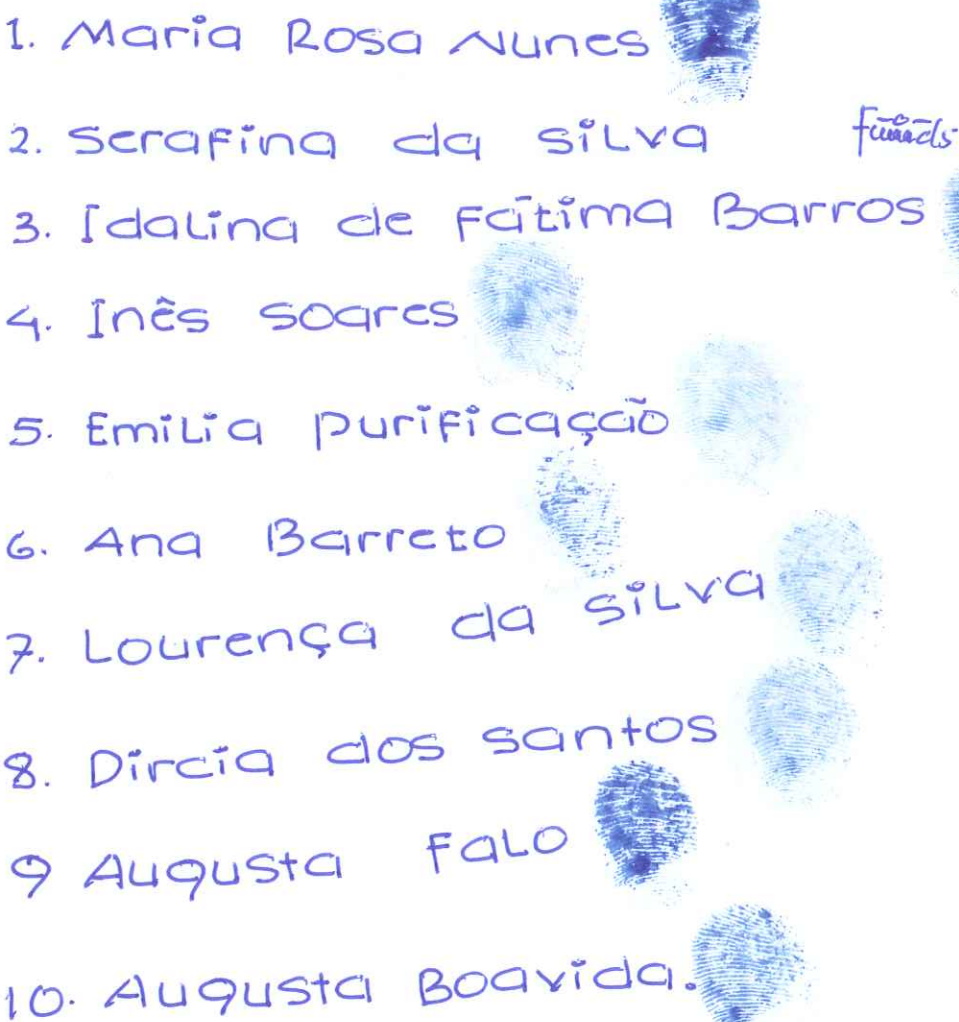 1. Maria Rosa Nunes
2. Serafina da Silva
3. Idalina de Fátima Barros
4. Inês Soares
5. Emilia Purificação
6. Ana Barreto
7. Lourença da Silva
8. Dircia dos Santos
9 Augusta Falo
10. Augusta Boavida.